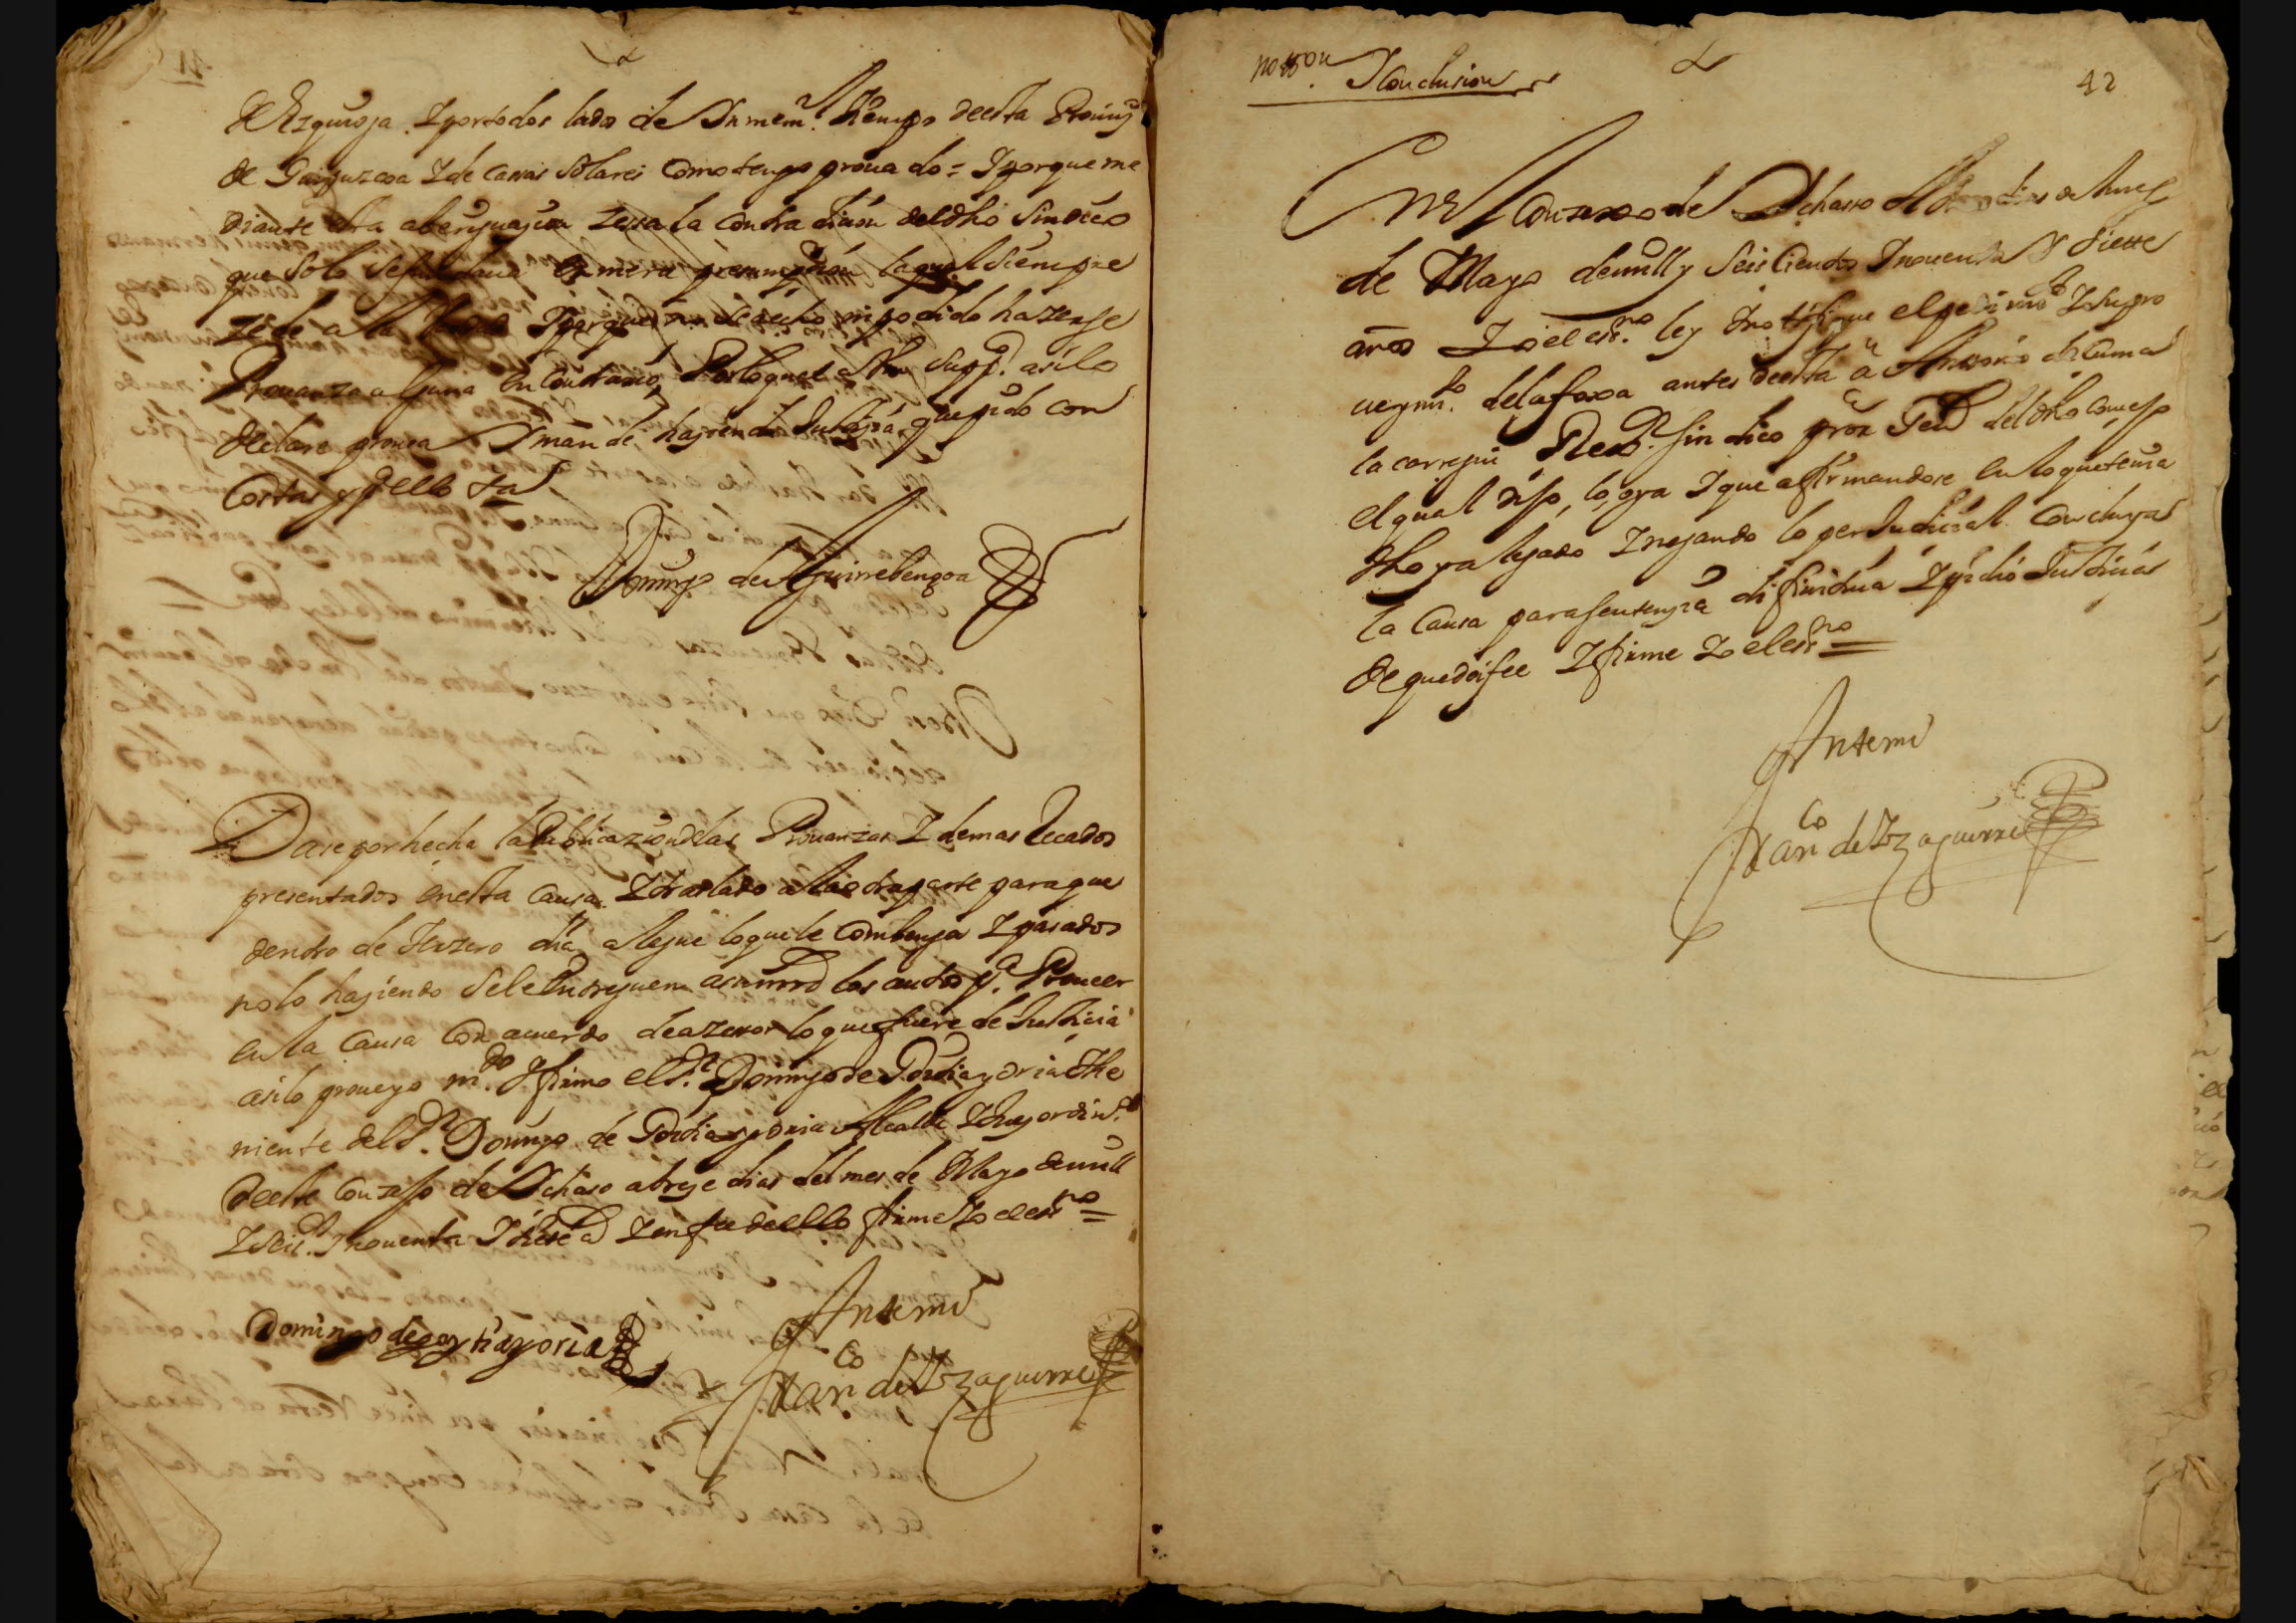 de Ezquioja. Y por todos lados de Inmem.l tiempo desta Prouinz.a
de Guipuzcoa Y de casas solares como tengo prouado = Y porque me
diante esta aberiguazion zessa la contradizion del dho sindico
que solo se fundaua en mera presumpzion la qual siempre
zede a la Y porque no de hecho ni podido hazerse
Prouanza alguna en contrario, Por lo qual a Vm supp.co asi lo
declare prouea Y mande haziendo Justizia que pido con
Costas y p.a ello ta
Domingo de Aguirrebengoa
Dase por hecha la Publicazion de las Prouanzas Y demas Recados
presentados en esta causa Y traslado a la otra parte para que
dentro de terzero dia alegue lo que le combenga Y pasados
no lo haziendo se le entreguen a su mrd los autos p.a Proueer
en la causa con acuerdo de asesor lo que fuere de Justicia
asi lo proueyo m.do Y firmo el S.r Domingo de Goitia y oria The
niente del S.r Domingo de Goitia y oria Alcalde Y Juez ordin.o
deste Conzejo de Ichaso a treze dias del mes de Mayo de mill
Y Seis.os Y nouenta Y siete a Y en fee de ello firme Yo el ess.no =
Domingo de goytiayoria
Ante mi
Fran.co de Yzaguirre
42
not.on Y Conclusion
En el Conzejo de Ichasso a dias del mes
de Mayo de mill y Seiscientos Y nouenta Y siette
años Yo el ess.no ley Y notifique el pedim.to Y su pro
ueym.to de la foxa antes desta a Antonio de
la carregui Rex.or sindico pror Gen.l del dho conzejo
el qual dijo, lo oya Y que afirmandose en lo que tenia
dho y alegado Y negando lo perJudicial Concluya
la Causa para sentenzia difinitiua Y pidio Justizia
de que doi fee Y firme Yo el ess.no =
Ante mi
Fran.co de Yzaguirre